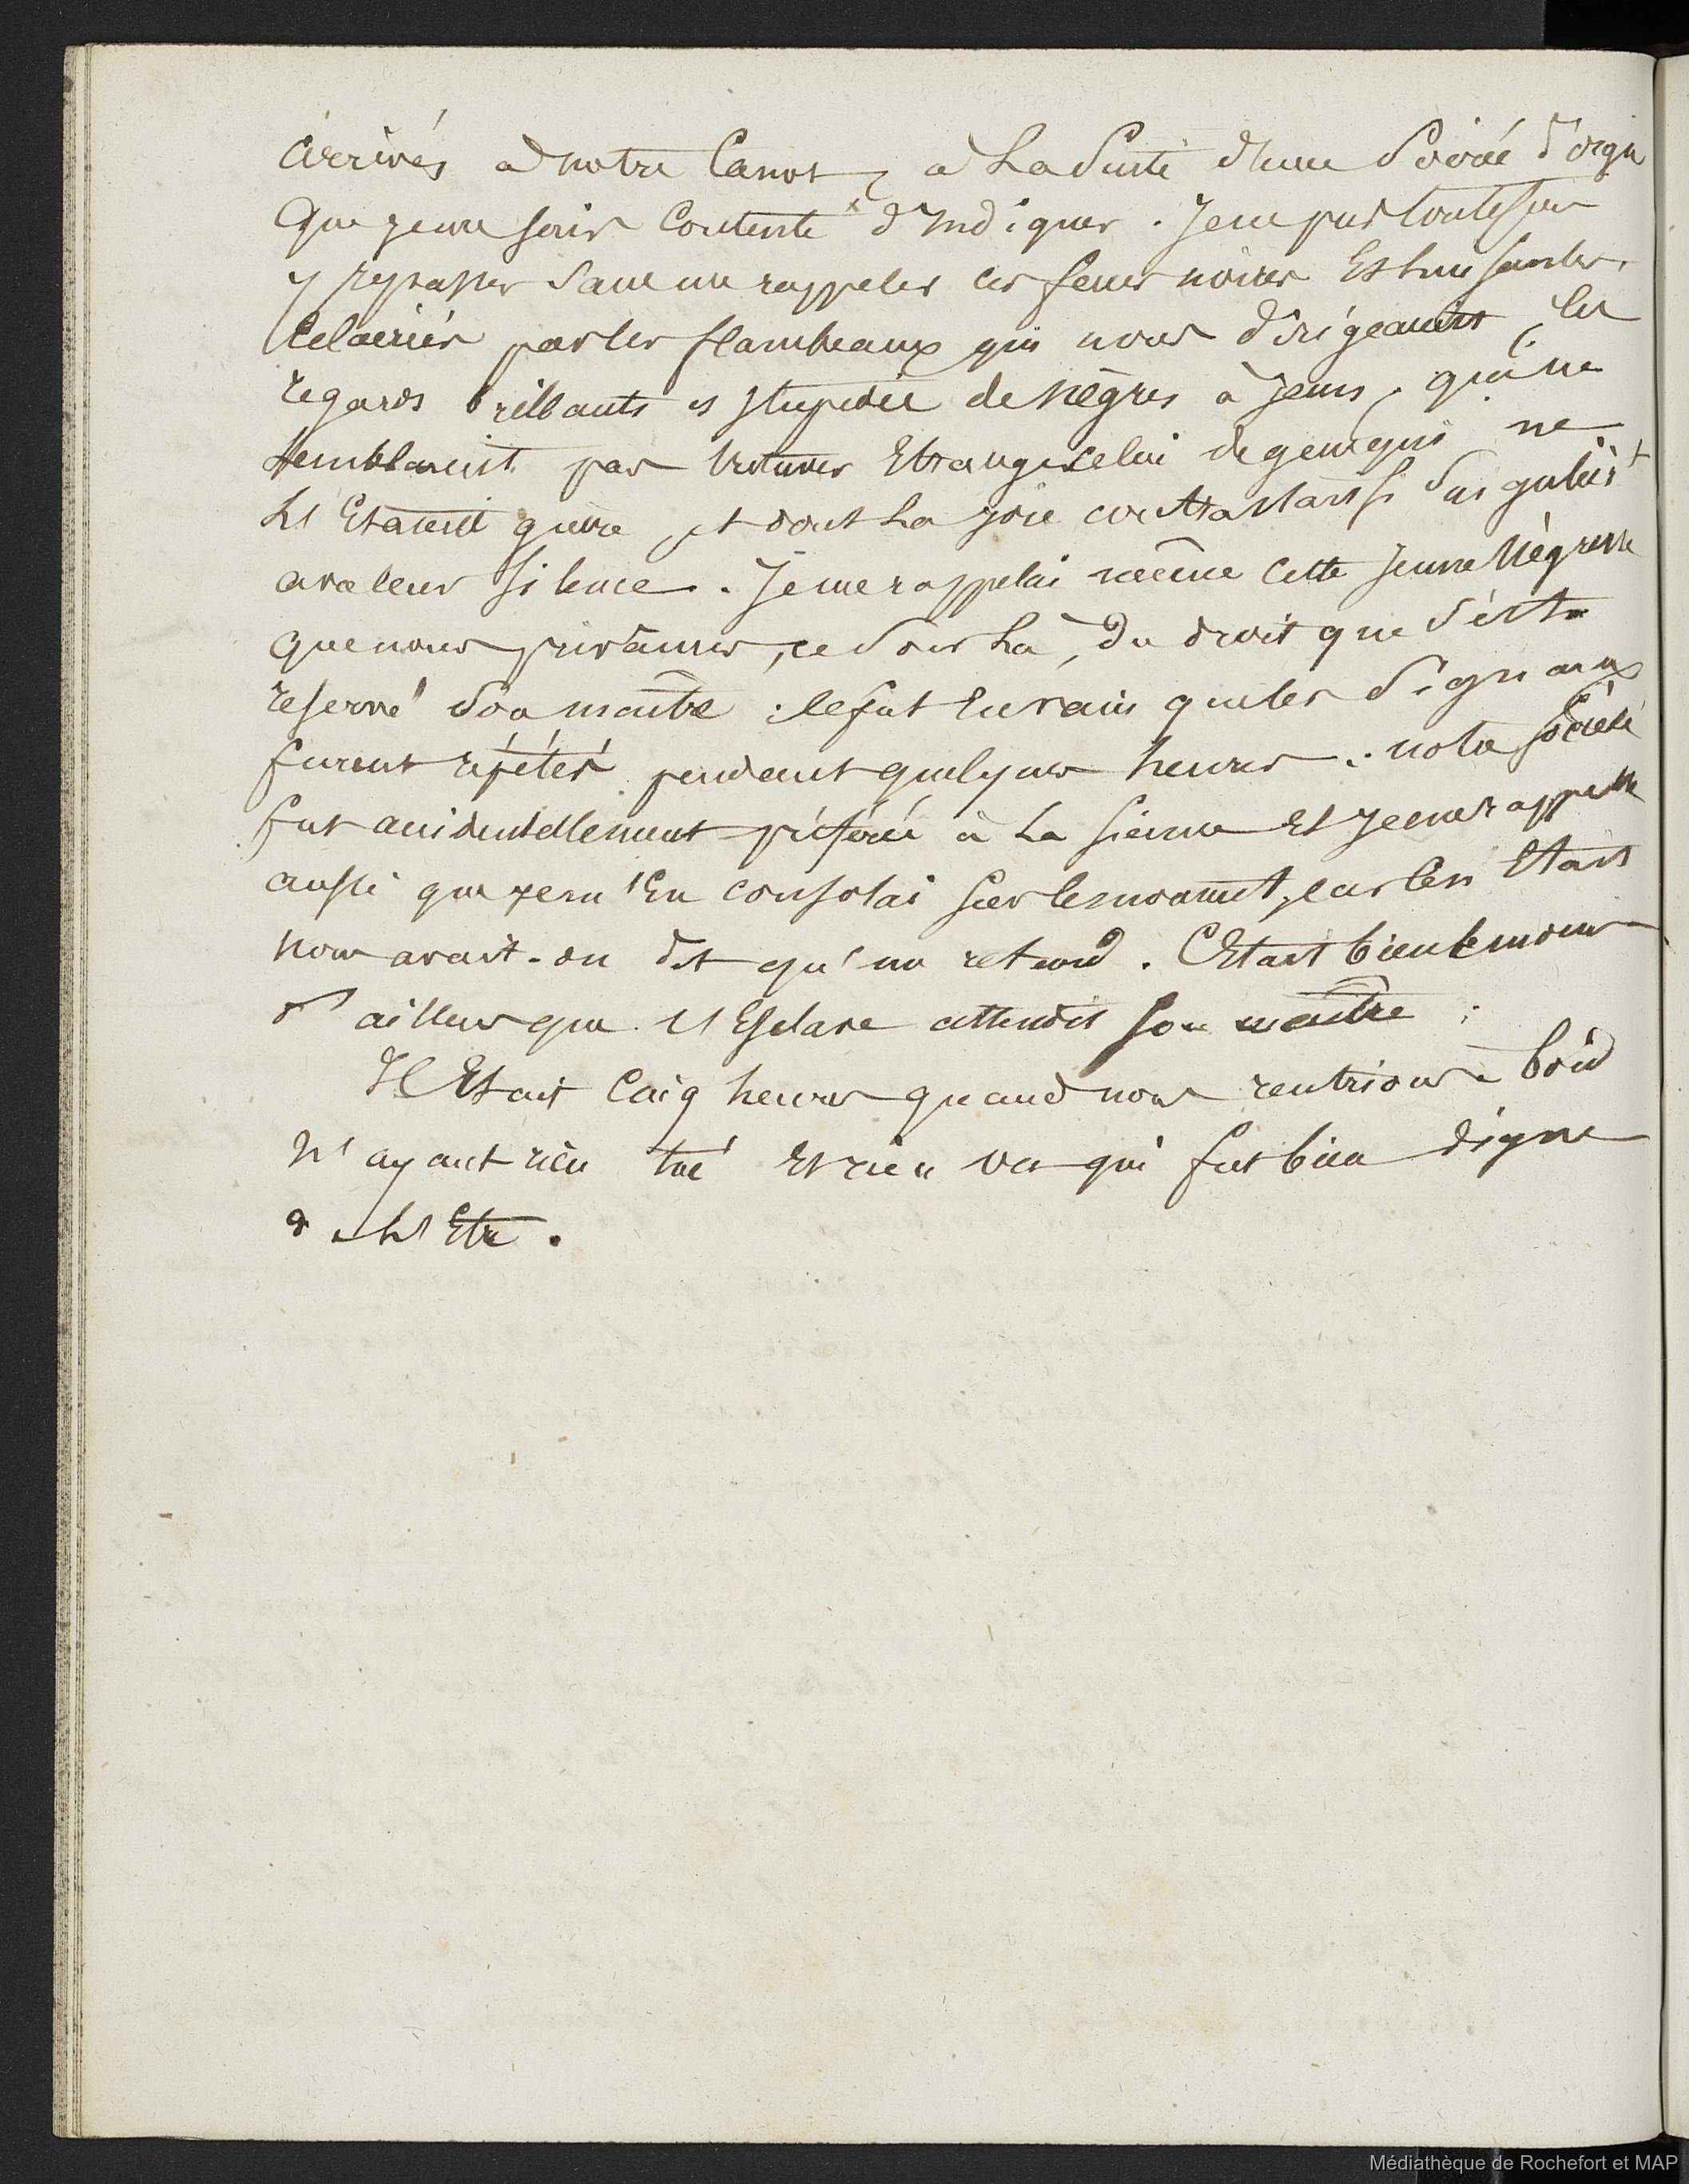 arrivés a notre Canot, a La Suite d'une Soirée d'orgie
Que je me suis Contenté d'Indiquer. Je ne pus toutefois
y repasser sans me rappeler ces feues noires Et luisantes,
Eclairées par les flambeaux qui nous dirigeaient, les
regards brillants et stupides de nègres à jeun, qui ne
semblaient pas trouver Etrange celui de gens qui ne
L'Etaient guère, et dont La joie contrastait si singulièrt
avec leur silence. Je me rappelai même cette jeune Négresse
que nous privâmes, ce Soir Là, du droit que s'était
reservé Son maitre : ce fut En vain que les Signaux
furent répétés pendant quelques heures : notre Société
fut accidentellement préférée à La sienne Et je me rappelle
aussi que je m'En consolai sur le moment, car ce n'Etait
nous avait-on dit qu'un retard. C'Etait bien le moins
d'ailleurs que l'Esclave attendit son maître ;
Il Etait Cinq heures quand nous rentrions a bord
N'ayant rien tué Et rien vu qui fut bien digne
de L'Etre.
Médiathèque de Rochefort et MAP